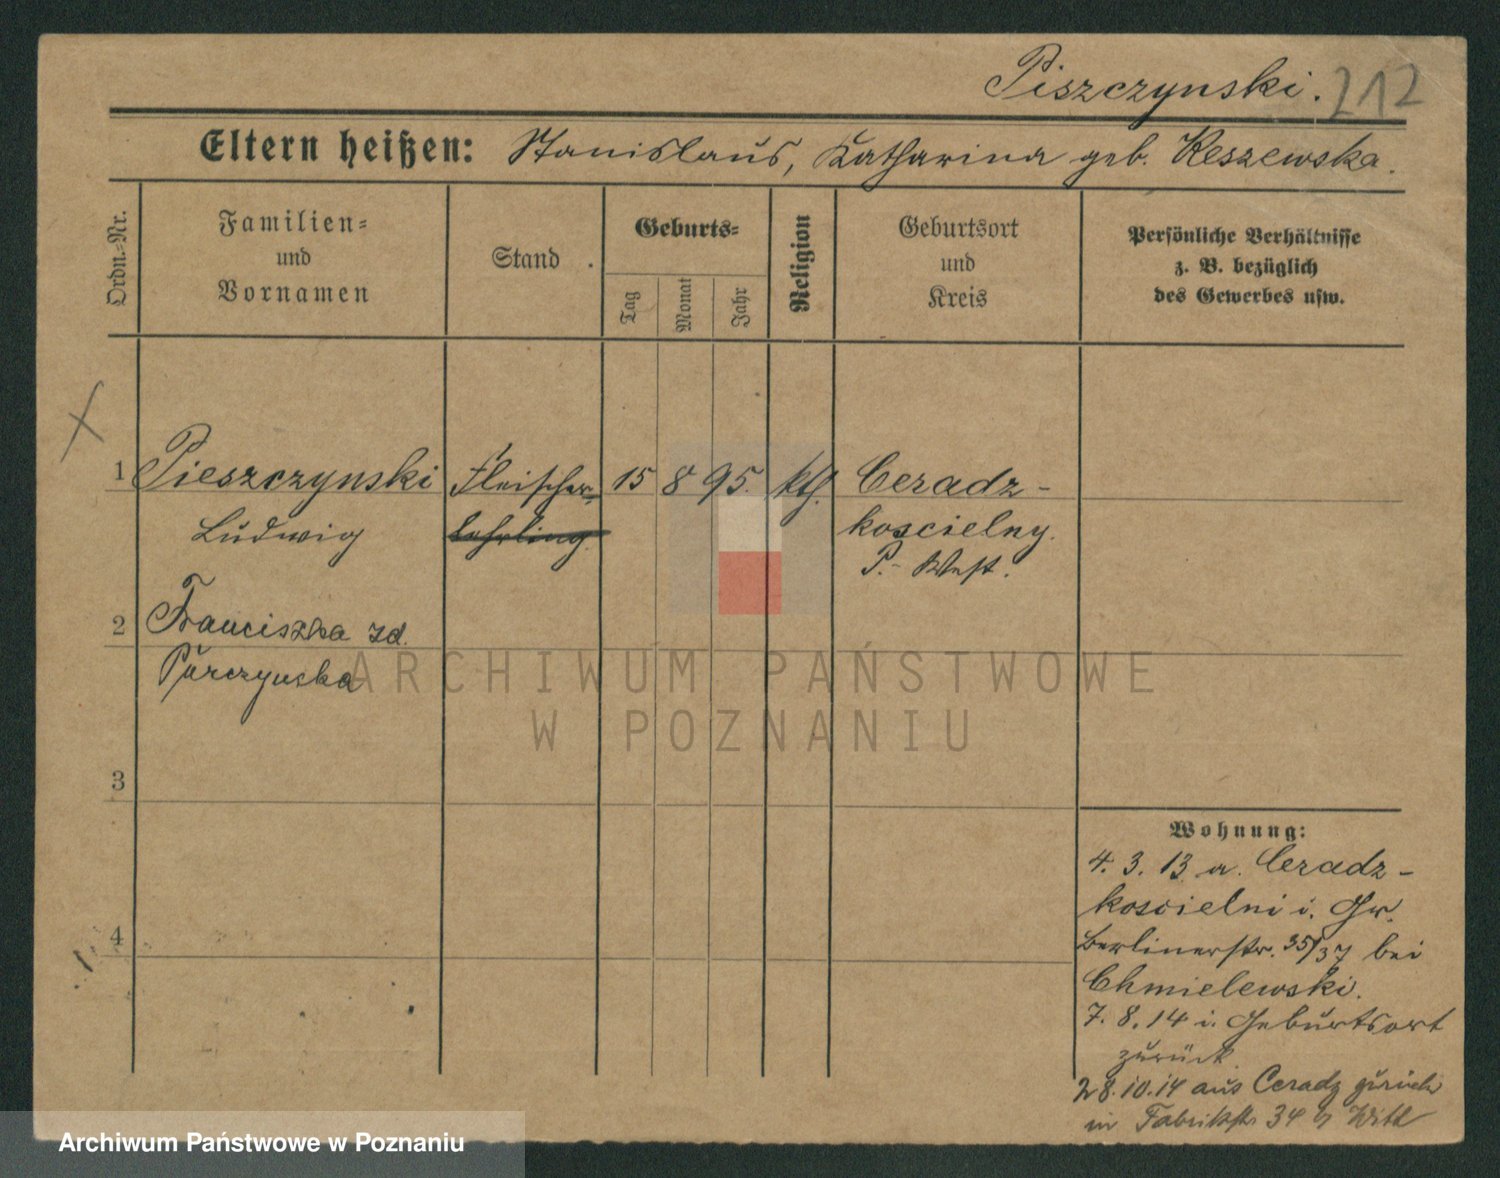 Piszczynski. 212
Eltern heißen: Stanislaus, Katharina geb. Keszewska.
Ordn.-Nr.
Familien-
und
Vornamen
Stand
Geburts-
Tag
Monat
Jahr
Religion
Geburtsort
und
Kreis
Persönliche Verhältnisse
z. B. bezüglich
des Gewerbes usw.
1 Pieszczynski Fleischer- 15 8 95. kth. Ceradz-
Ludwig lehrling koscielny.
P.- West.
2 Franciszka zd.
Purczynska
3
4
Wohnung:
4. 3. 13 a. Ceradz-
koscielni i. Gw.
Berlinerstr. 35/37 bei
Chmielewski.
7. 8. 14 i. Geburtsort
zurück
28.10.14 aus Ceradz zurück
in Fabrikstr 34 b Witt
ARCHIWUM PAŃSTWOWE
W POZNANIU
Archiwum Państwowe w Poznaniu